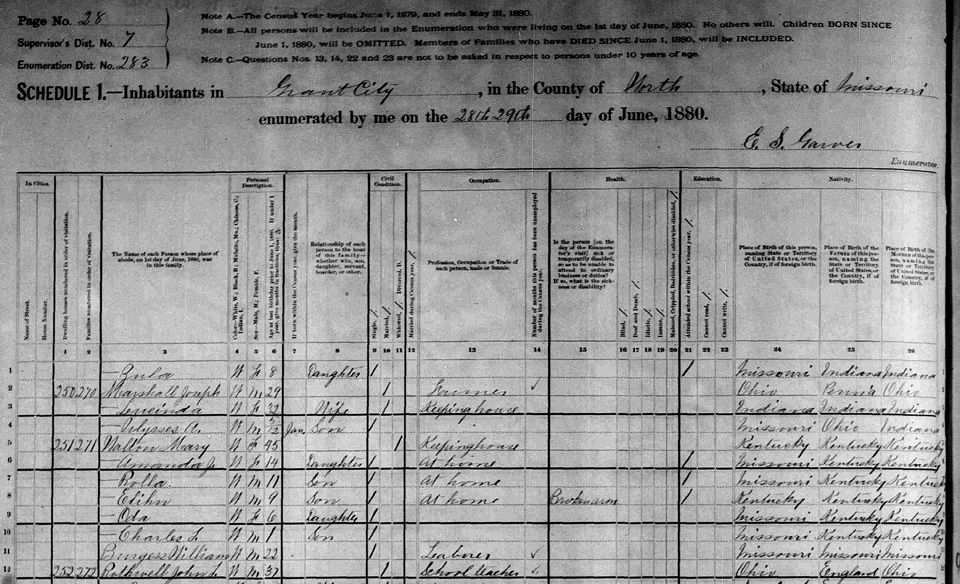 Page No. 28
Supervisor's Dist. No. 7
Enumeration Dist. No. 283
Note A.—The Census Year begins June 1, 1879, and ends May 31, 1880.
Note B.—All persons will be included in the Enumeration who were living on the 1st day of June, 1880. No others will. Children BORN SINCE
June 1, 1880, will be OMITTED. Members of Families who have DIED SINCE June 1, 1880, will be INCLUDED.
Note C.—Questions Nos. 13, 14, 22 and 23 are not to be asked in respect to persons under 10 years of age.
SCHEDULE 1.—Inhabitants in Grant City, in the County of Worth, State of Missouri
enumerated by me on the 28th 29th day of June, 1880.
E. S. Garver
Enumerator.
In Cities. Personal Description. Civil Condition. Occupation. Health. Education. Nativity.
Name of Street.
House Number.
Dwelling houses numbered in order of visitation.
Families numbered in order of visitation.
The Name of each Person whose place of abode, on 1st day of June, 1880, was in this family.
Sex—Male, M; Female, F.
If born within the Census year, give the month.
Relationship of each person to the head of this family—whether wife, son, daughter, servant, boarder, or other.
Single, /
Married, /
Widowed, / Divorced, D.
Married during Census year, /
Profession, Occupation or Trade of each person, male or female.
Number of months this person has been unemployed during the Census year.
Is the person [on the day of the Enumerator's visit] sick or temporarily disabled, so as to be unable to attend to ordinary business or duties? If so, what is the sickness or disability?
Blind, /
Deaf and Dumb, /
Idiotic, /
Insane, /
Maimed, Crippled, Bedridden, or otherwise disabled, /
Attended school within the Census year, /
Cannot read, /
Cannot write, /
Place of Birth of this person, naming State or Territory of United States, or the Country, if of foreign birth.
Place of Birth of the FATHER of this person, naming the State or Territory of United States, or the Country, if of foreign birth.
Place of Birth of the MOTHER of this person, naming the State or Territory of United States, or the Country, if of foreign birth.
1 2 3 4 5 6 7 8 9 10 11 12 13 14 15 16 17 18 19 20 21 22 23 24 25 26
1 — W F 8 Daughter / / Missouri Indiana Indiana
2 250 270 Marshall Joseph W M 29 / Ohio Penna Ohio
3 — W F 32 Wife / Keeping house Indiana Indiana Indiana
4 — Ulysses A. W M 5/12 Jan Son / Missouri Ohio Indiana
5 251 271 Walton Mary W F 45 / Keeping house Kentucky Kentucky Kentucky
6 — Amanda J. W F 14 Daughter / At home / Missouri Kentucky Kentucky
7 — Rolla W M 11 Son / At home / Missouri Kentucky Kentucky
8 — Elihu W M 9 Son / At home / Kentucky Kentucky Kentucky
9 — Oda W F 6 Daughter / Missouri Kentucky Kentucky
10 — Charles L W M 1 Son / Missouri Kentucky Kentucky
11 Burgess William W M 22 / Laborer Missouri Missouri Missouri
12 252 272 Rothwell John L W M 37 / School teacher Ohio England Ohio